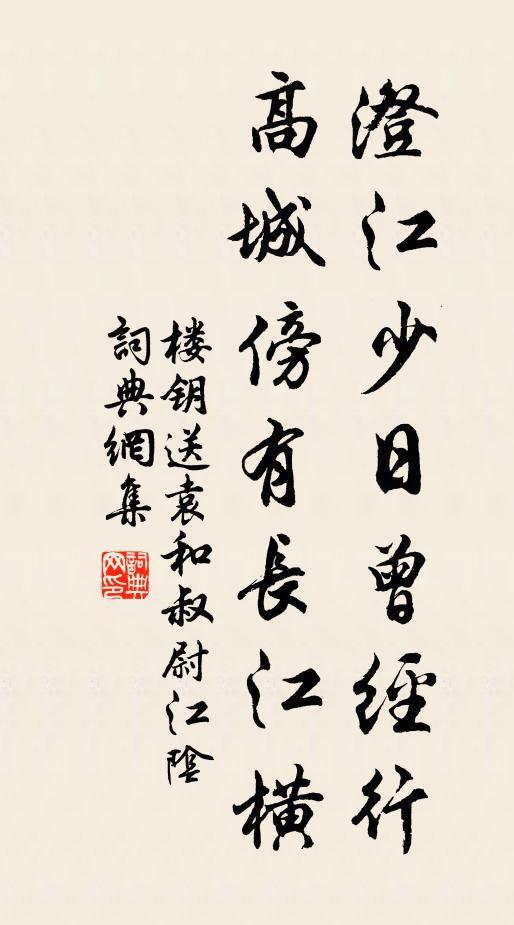 澄江少日曾經行
高城傍有長江横
楼钥送袁和叔尉江陰
詞典網集
詞典
网印